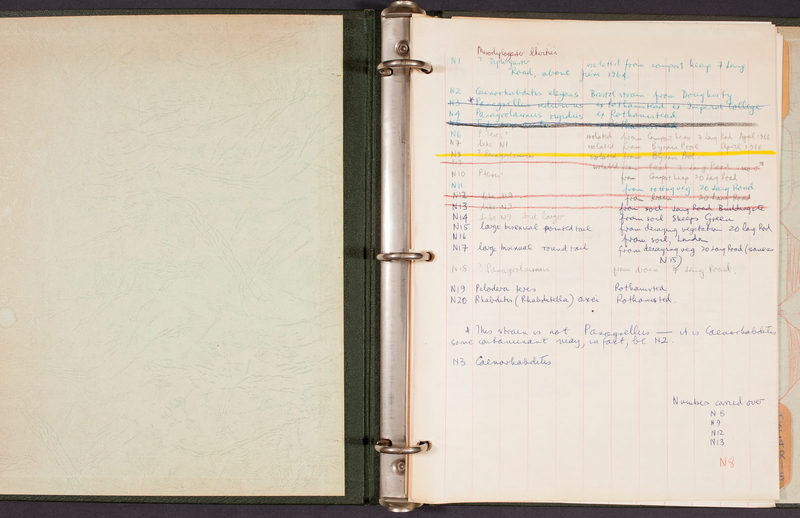 N1 ? Diplogaster isolated from compost heap 7 Long
Road, about June 1964.
N2 Caenorhabditis elegans Bristol strain from Dougherty
N3 * Panagrellus redivivus ex Rothamsted ex Imperial College
N4 Panagrolaimus rigidus ex Rothamsted
N6 isolated from Compost Heap 7 Long Rd April 1966
N7 like N1 isolated from Byrons Pool April 1966
N8 ? Panagrolaimus isolated from Byrons Pool
N10 from Compost Heap 20 Long Road
N11 from rotting veg 20 Long Road
N12 like N9 from 20 Long Road
N13 like N9 from soil Long Road
N14 like N9 but larger from soil Sheeps Green
N15 large bisexual pointed tail from decaying vegetation 20 Long Rd
N16 from soil, London
N17 large bisexual round tail from decaying veg 20 Long Road (same as
N15)
N18 ? Panagrolaimus from drain 7 Long Road.
N19 Pelodera teres Rothamsted
N20 Rhabditis (Rhabditella) axei Rothamsted.
* This strain is not Panagrellus — it is Caenorhabditis
some contaminant may, in fact, be N2.
N3 Caenorhabditis
Numbers carried over
N5
N9
N12
N13
N8